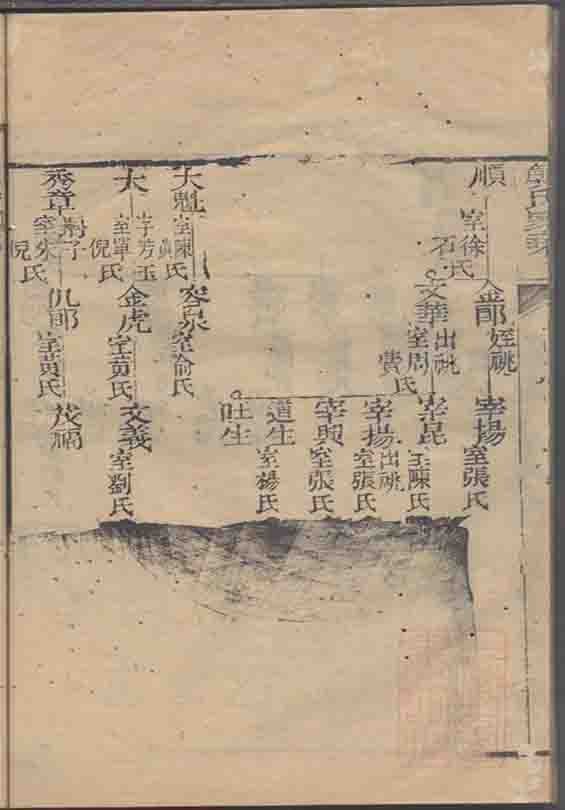 氏家乘
順
室徐氏
石
大魁
室陳氏
黃
大
字芳玉
室覃氏
倪
秀章
嗣子
室宋氏
倪
金郎
姪祧
文華
出祧
室周氏
費
容泉
室俞氏
金虎
室黃氏
九郎
室黃氏
宰揚
室張氏
宰昆
室陳氏
宰揚
出祧
室張氏
宰興
室張氏
道生
室楊氏
吐生
文義
室劉氏
茂福